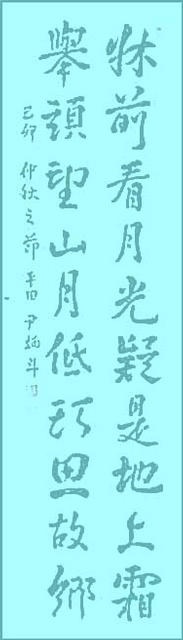 牀前看月光疑是地上霜
舉頭望山月低頭思故鄉
己卯仲秋之節 平田 尹炳斗